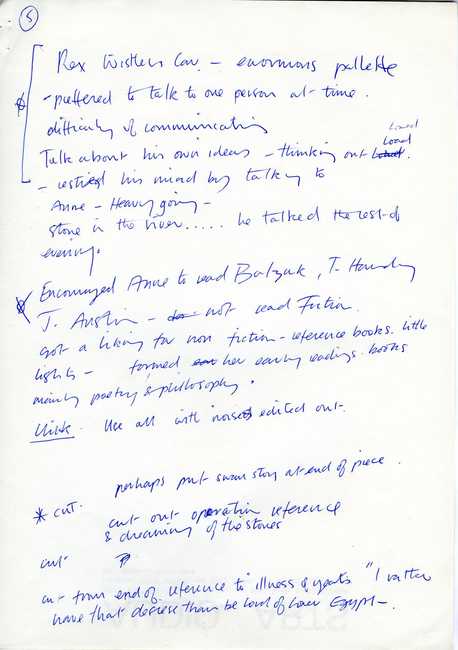 5
Rex Wistlers Car. - enormous pallette
- preffered to talk to one person at time.
difficulty of communication
Talk about his own ideas - thinking out Loud.
- rested his mind by talking to
Anne - Heavy going -
stone in the river..... he talked the rest of
evening.
Encouraged Anne to read Balzak, T. Hardy
J. Austin - not read Fiction.
got a liking for non fiction - reference books. little
lights - formed her early readings. books
mainly poetry & philosophy.
Use all with noises edited out.
perhaps put swan story at end of piece.
* CUT. cut out operation reference
& dreaming of the stones
cut ?
cut from end of reference to illness of yeats "I rather
have that decrees than be lord of lower Egypt -.